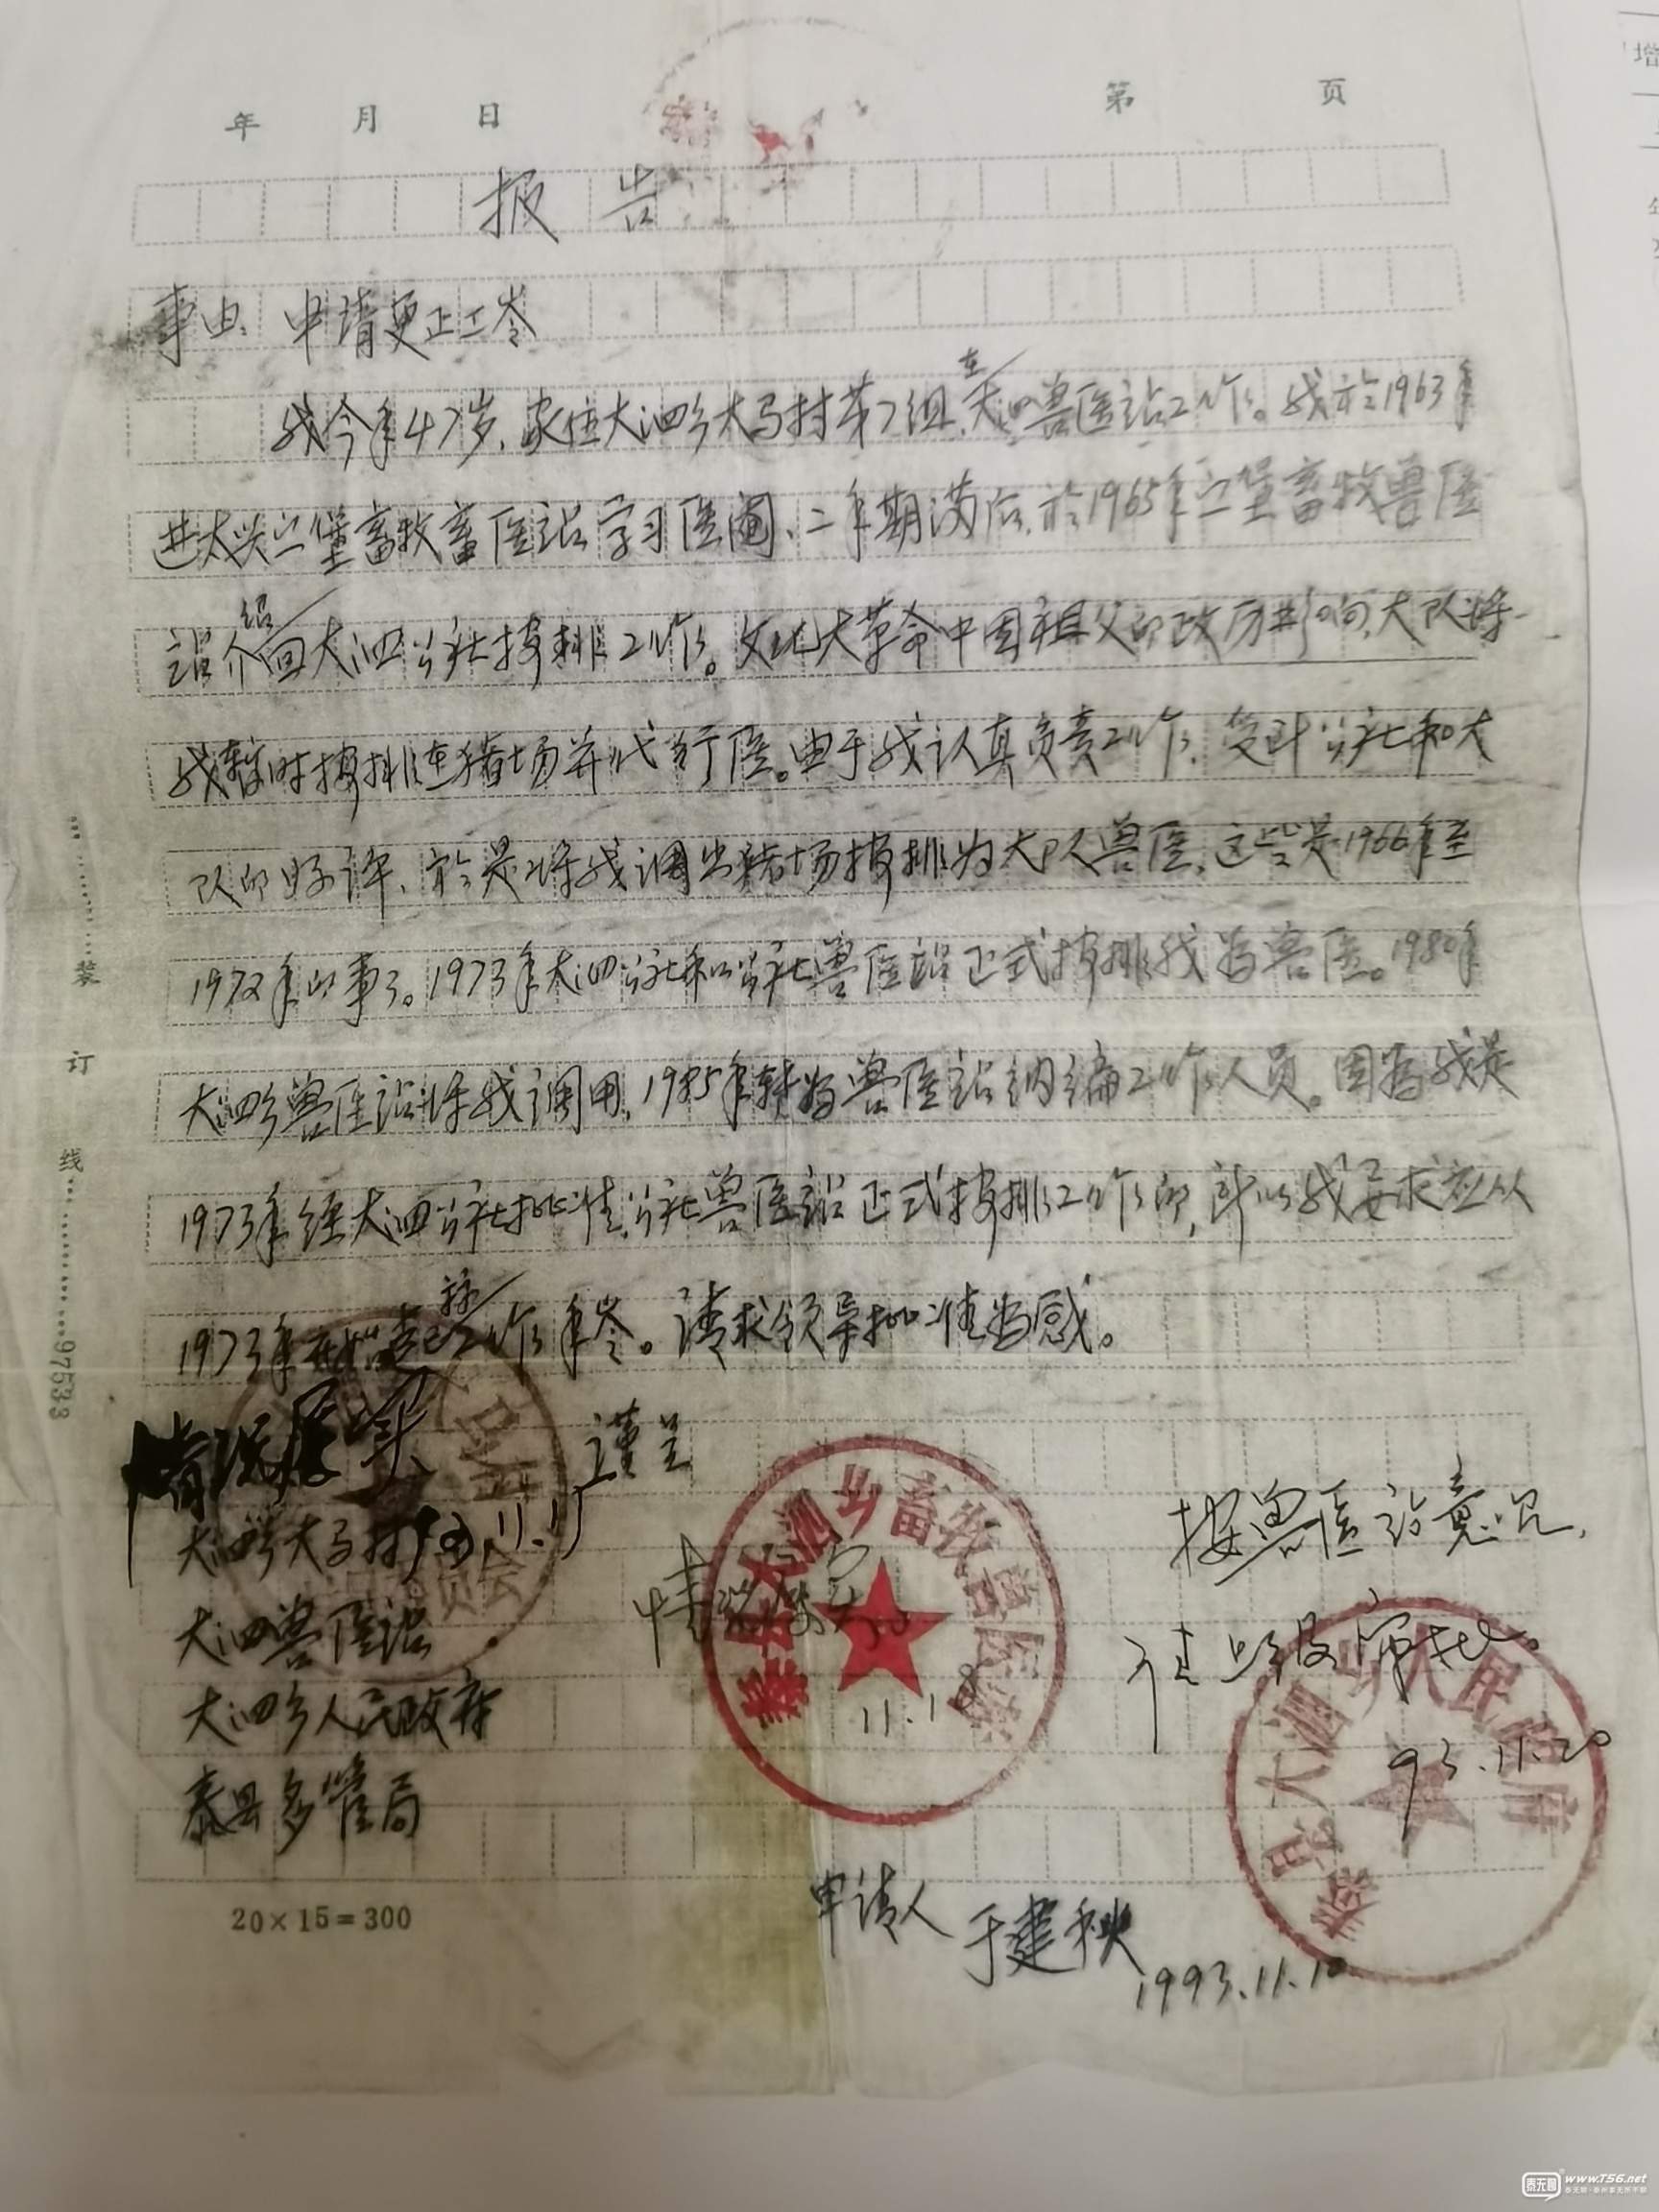 年 月 日 第 页
报告
事由：申请更正工令
我今年47岁，家住大泗乡大马村第7组，在大泗兽医站工作。我於1963年
进太兴 堡畜牧畜医站学习医阉、二年期满后，於1965年 堡畜牧兽医
站介绍回大泗公社按排工作。文化大革命中因祖父的政历影响，大队将
我暂时按排在猪场并代行医。由于我认真负责工作，受到公社和大
队的好评、於是将我调出猪场按排为大队兽医，这些是1966年至
1972年的事了。1973年大泗公社和公社兽医站正式按排我为兽医。1980年
大泗乡兽医站将我调用，1985年转为兽医站纳编工作人员。因为我是
1973年经大泗公社批准，公社兽医站正式按排工作的，所以我要求应从
1973年 起 工作年令。请求领导批准为感。
情况属实
谨呈
大泗乡大马村 93.11.11
大泗兽医站
大泗乡人民政府
泰县多管局
情况属实
11.18
泰县大泗乡畜牧兽医站
按兽医站意见，
请上级审批。
93.11.20
泰县大泗乡人民政府
申请人 于建秧
1993.11.10
20×15=300
装 订 线
97533
增
泰无聊
www.T56.net